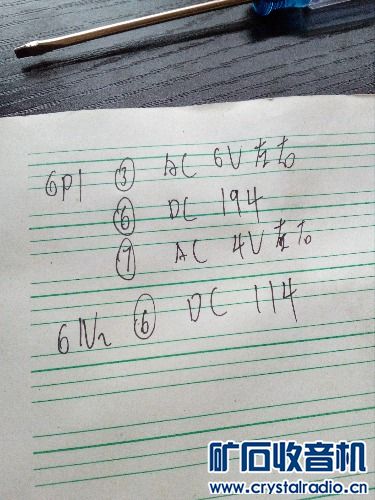 6P1 ③ AC 6V左右
⑥ DC 194
⑦ AC 4V左右
6N2 ⑥ DC 114
矿石收音机
www.crystalradio.cn